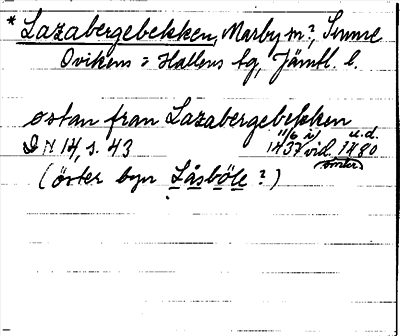 * Lazabergebekken, Marby sn?, Sunne
Ovikens o Hallens tg, Jämtl. l.
østan fran Lazabergebekken
DN 14, s. 43 1437 11/6 i vid. u.d. 1480
(öster byn Låsböle ?)